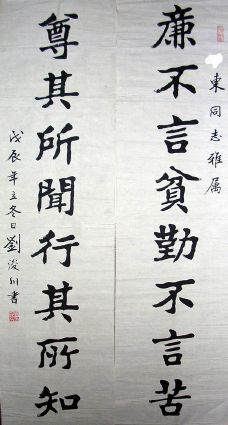 廉不言貧勤不言苦
東同志雅属
尊其所聞行其所知
戊辰年立冬日劉浚川書